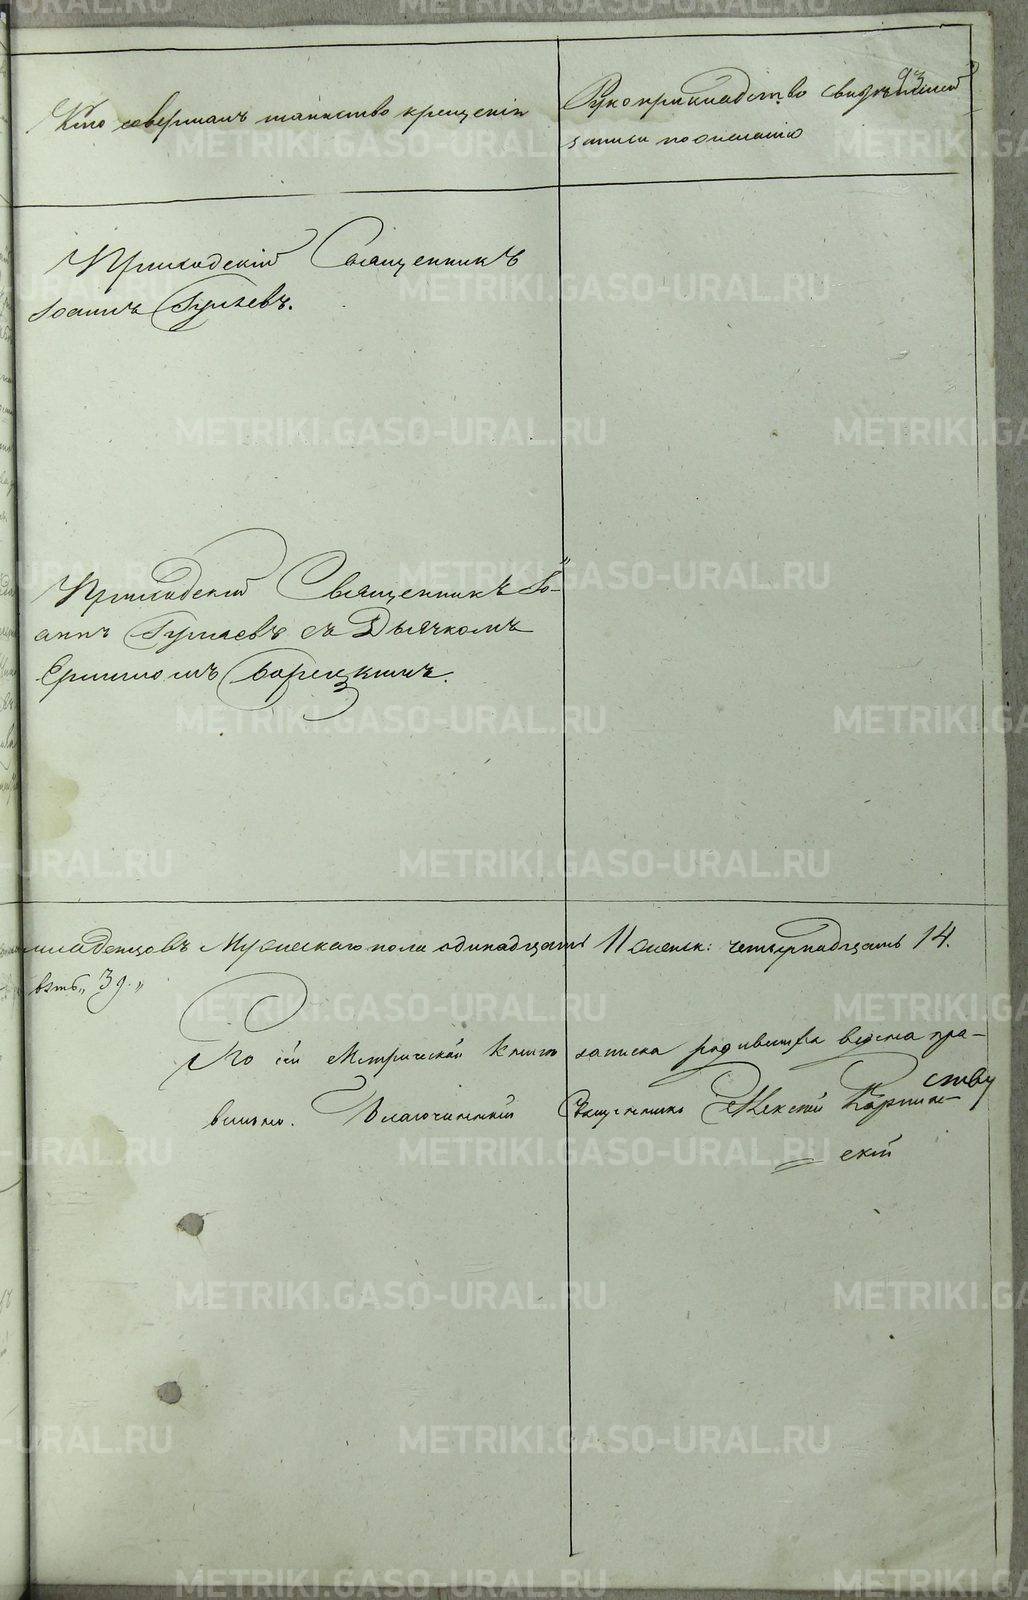 93
Кто совершалъ таинство крещенія
Рукоприкладство свидѣтелей
записи по желанію
Приходскій Священникъ
Іоаннъ Гуляевъ.
Приходскій Священникъ Іо-
аннъ Гуляевъ съ Дьячкомъ
младенцовъ Мужескаго пола одинадцать 11 женск: четырнадцать 14.
По сей Метрической книгѣ записка родившихся ведена пра-
вильно. Благочинный Священникъ Алексій Карпин-
скій
METRIKI.GASO-URAL.RU